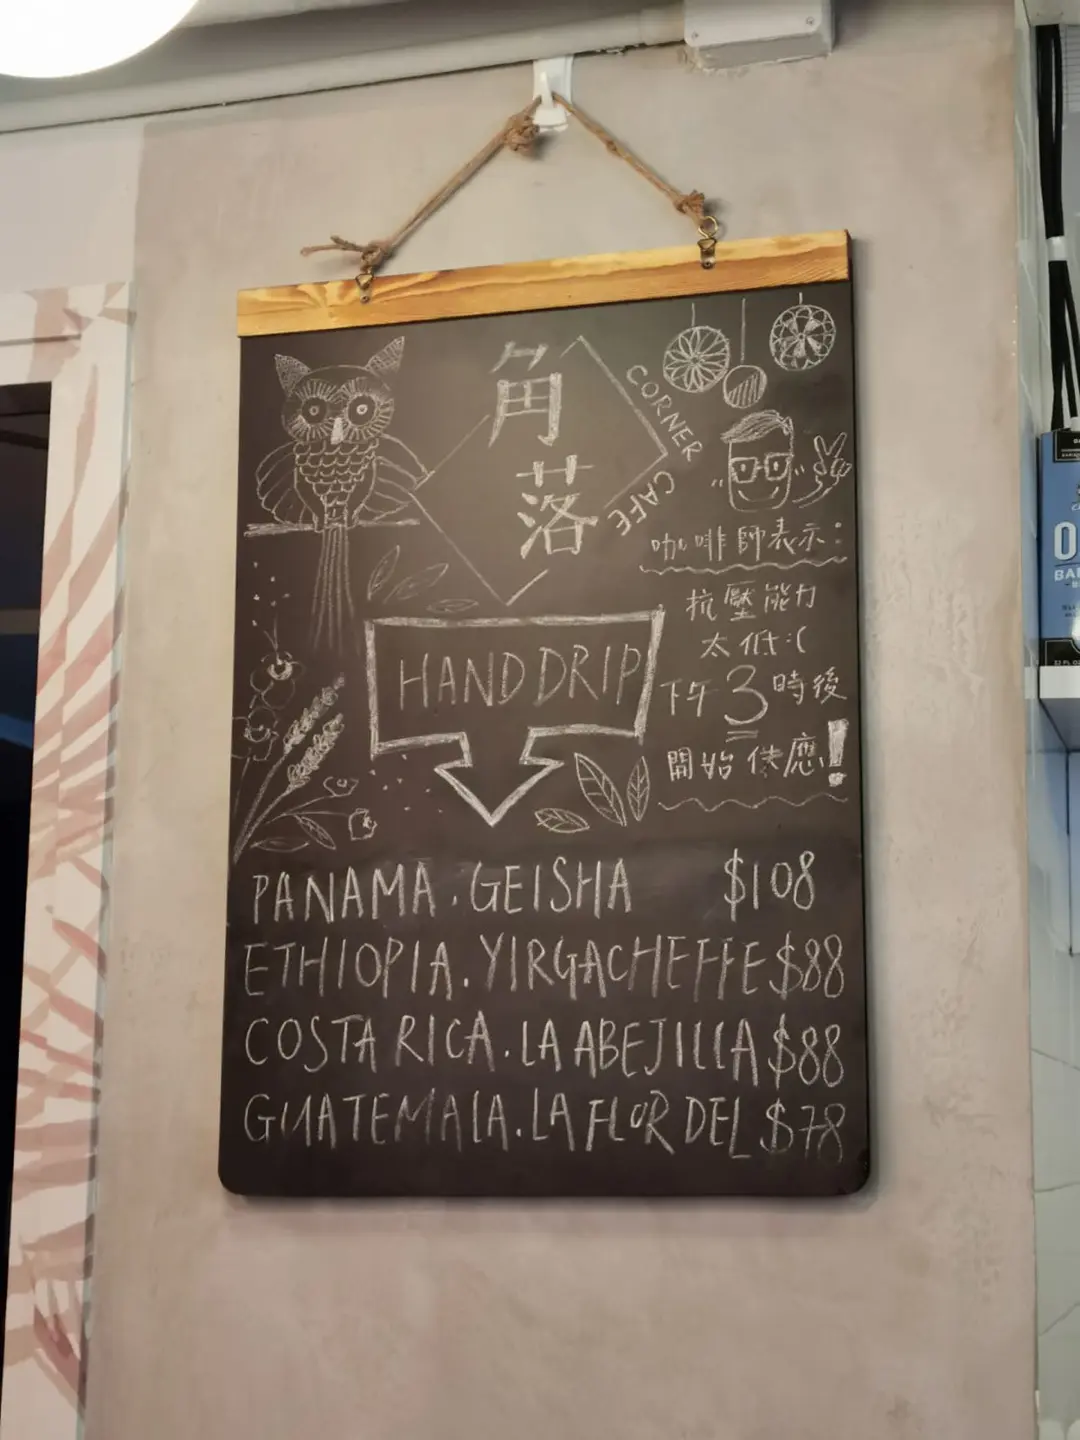 角落
CORNER CAFE
咖啡師表示：
抗壓能力
太低:(
下午3時後
開始供應!
HAND DRIP
PANAMA . GEISHA $108
ETHIOPIA. YIRGACHEFFE $88
COSTA RICA. LA ABEJILLA $88
GUATEMALA. LA FLOR DEL $78